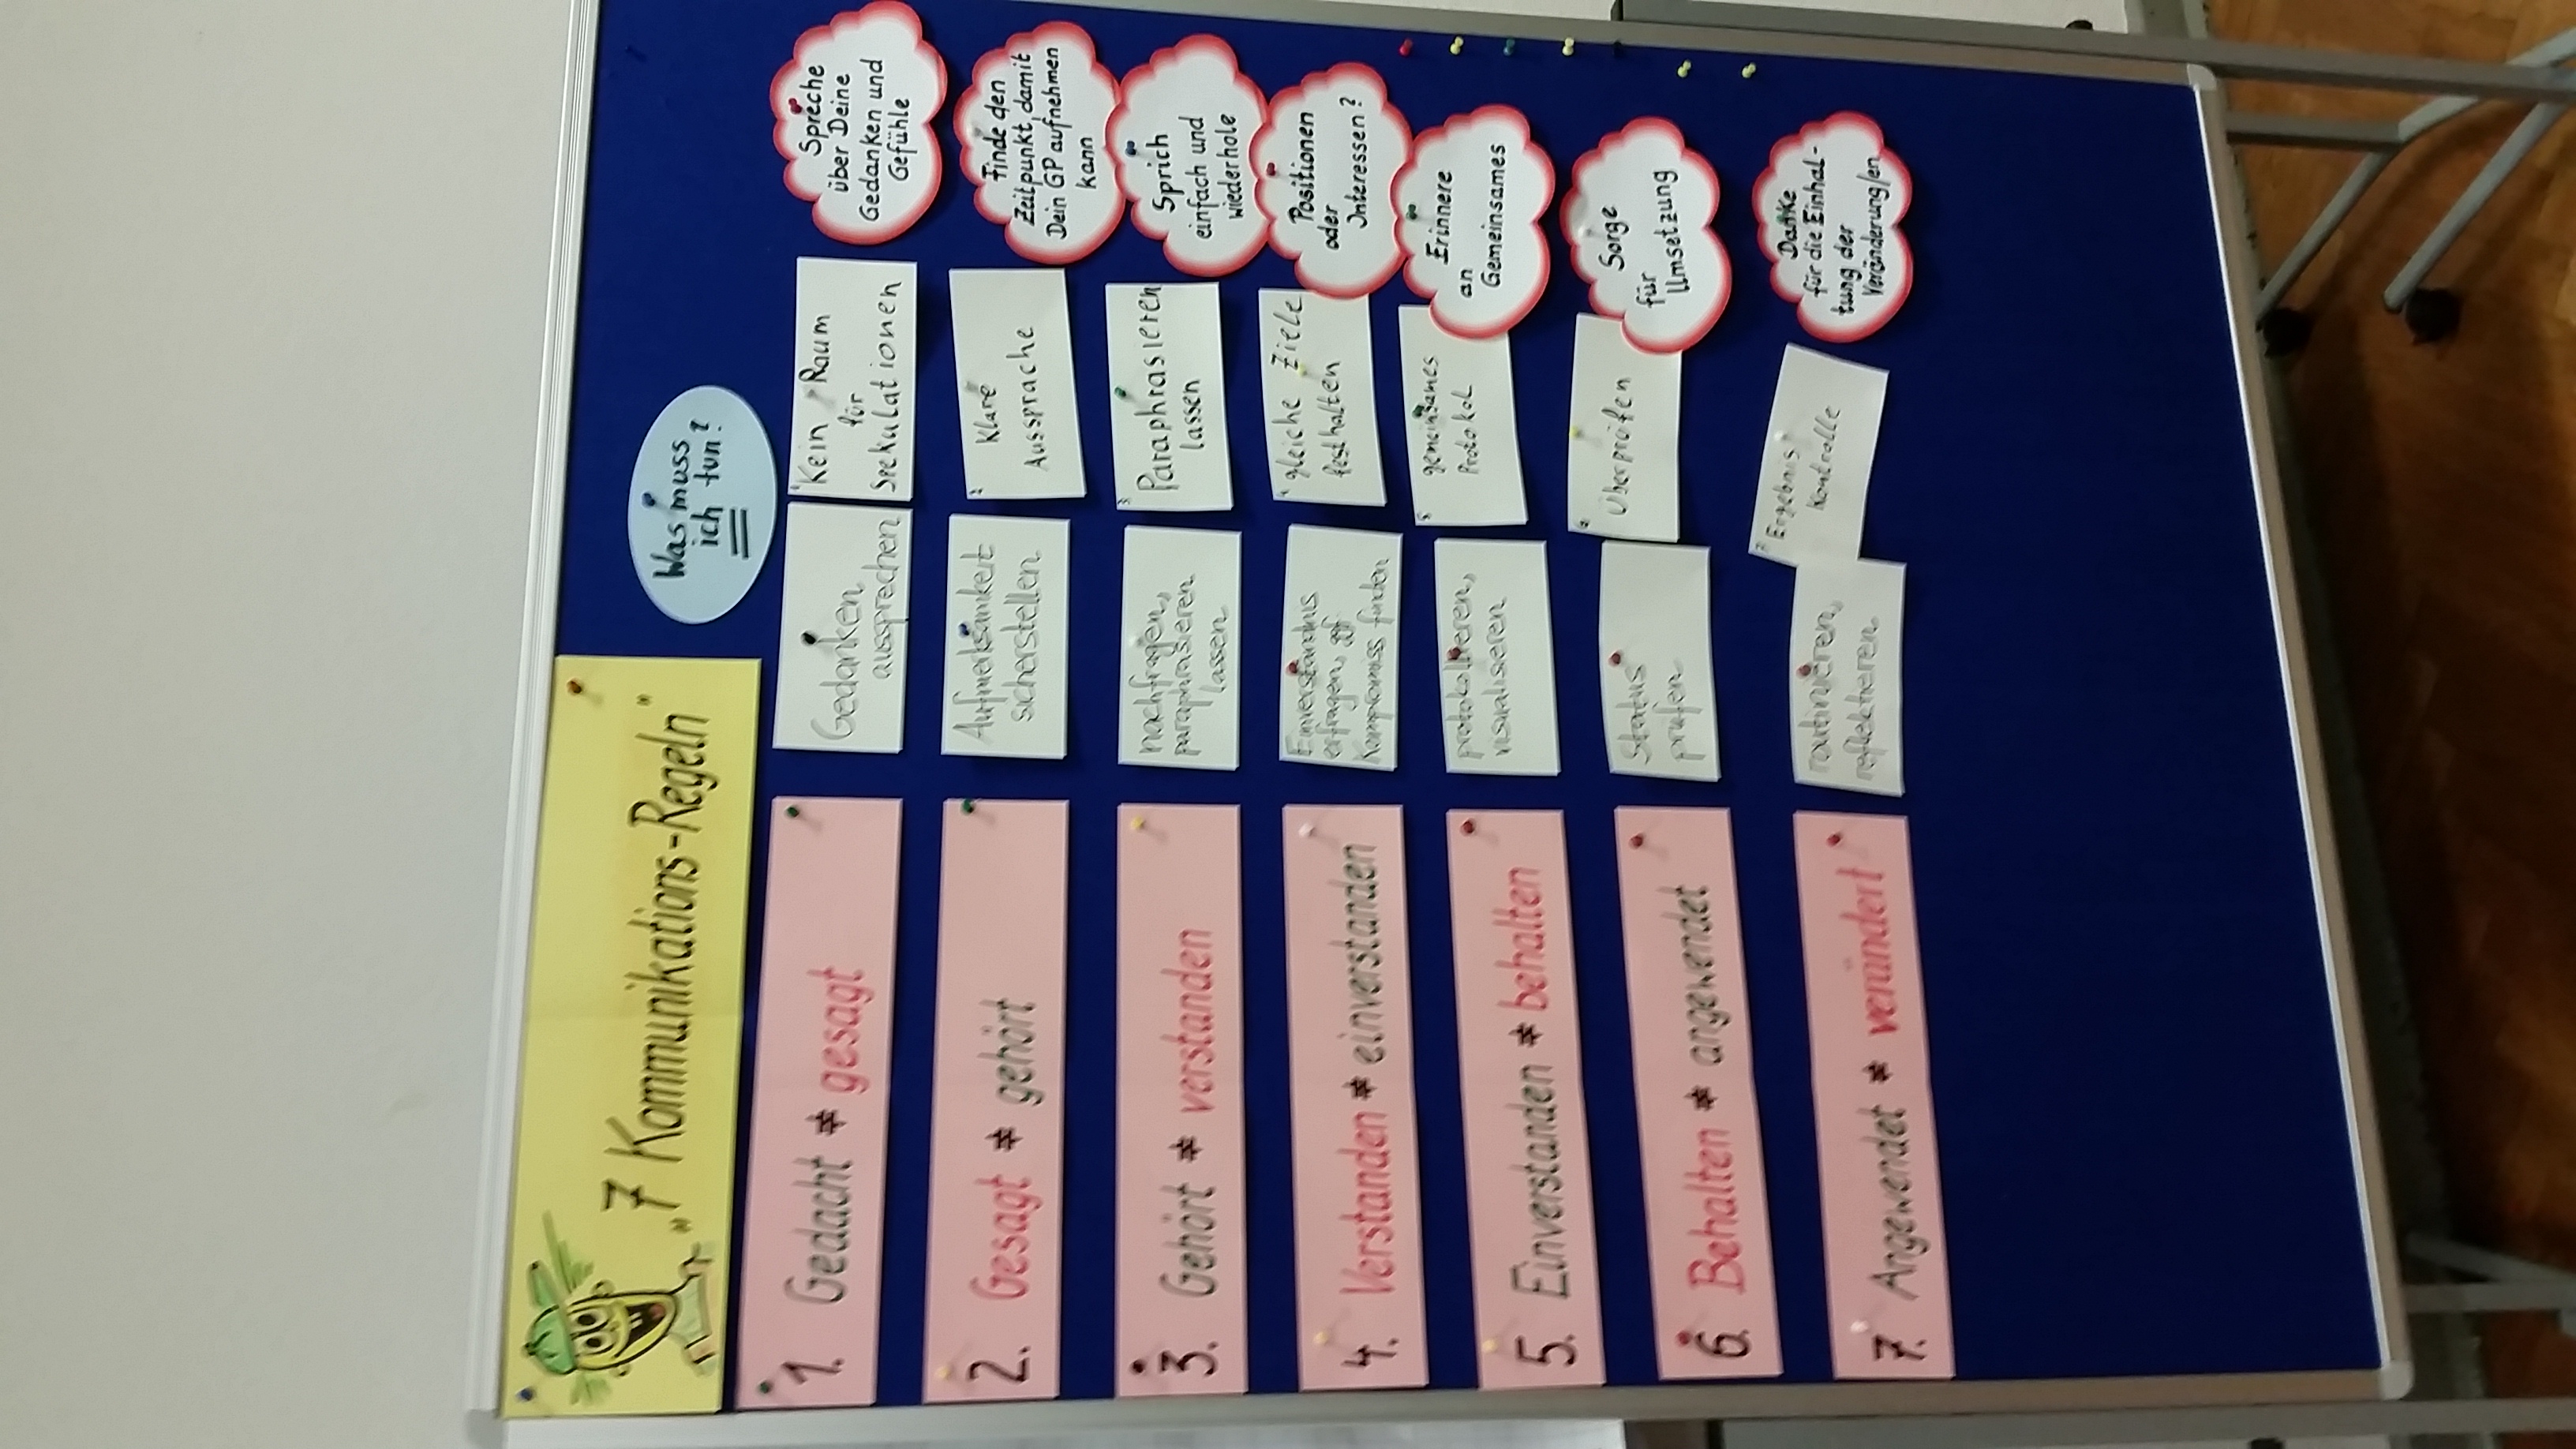 „7 Kommunikations-Regeln"
Was muss
ich tun?
1. Gedacht ≠ gesagt
Gedanken
aussprechen
1 Kein Raum
für
Spekulationen
Spreche
über Deine
Gedanken und
Gefühle
2. Gesagt ≠ gehört
Aufmerksamkeit
sicherstellen
2 Klare
Aussprache
Finde den
Zeitpunkt, damit
Dein GP aufnehmen
kann
3. Gehört ≠ verstanden
nachfragen,
paraphrasieren
lassen
3 Paraphrasieren
lassen
Sprich
einfach und
wiederhole
4. Verstanden ≠ einverstanden
Einverständnis
erfragen, ggf
Kompromiss finden
4 gleiche Ziele
festhalten
Positionen
oder
Interessen?
5. Einverstanden ≠ behalten
protokollieren,
visualisieren
5 gemeinsames
Protokol
Erinnere
an
Gemeinsames
6. Behalten ≠ angewendet
Status
prüfen
6 Überprüfen
Sorge
für
Umsetzung
7. Angewendet ≠ verändert
routinieren,
reflektieren
7 Ergebnis
Kontrolle
Danke
für die Einhal-
tung der
Veränderung/en